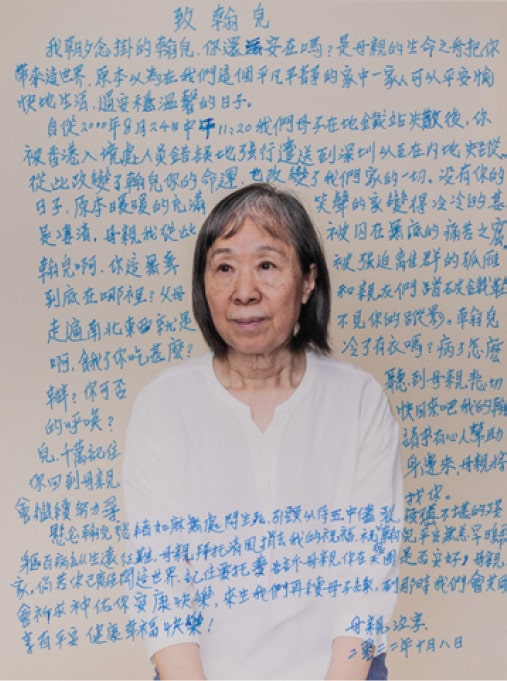 致翰兒
我朝夕念掛的翰兒、你還安在嗎?是母親的生命之母把你
帶來這世界、原本以為在我們這個平凡平靜的家中一家人可以平安愉
快地生活、過安穩溫馨的日子。
自從2000年8月24日中午11:20我們母子在地鐵站失散後,你
被香港入境處人員錯誤地強行遣送到深圳以至在內地失蹤。
從此改變了翰兒你的命運、也改變了我們家的一切。没有你的
日子、原本暖暖的充滿 笑聲的家變得冷冷的甚
是淒清,母親我從此 被囚在無底的痛苦之
翰兒啊、你這無辜 被強迫離群的孤雁
到底在哪裡?父母 和親友們踏破鐵鞋
走遍南北東西就是 不見你的蹤影。翰兒
啊,餓了你吃甚麼? 冷了有衣嗎?病了怎麼
辦?你可否 聽到母親悲切
的呼喚? 快回來吧我的翰
兒,千萬記住 請求有心人幫助
你回到母親 身邊來,母親將
會繼續努力尋 找你。
念翰兒 緒如麻無處問生死,引頸以待五中儘裂 不堪的
軀百病叢生 母親拜托清風捎去我的祝福,祝翰兒平安無恙早日歸
家。倘若你已離開這世界、記住要托夢告 母親你在天國是否安好?母親
會祈求神佑你安康快樂,來生我們再 母子緣,到那時我們會共同
享有平安健康幸福快樂!
母親 泣字
二零二二年十月八日